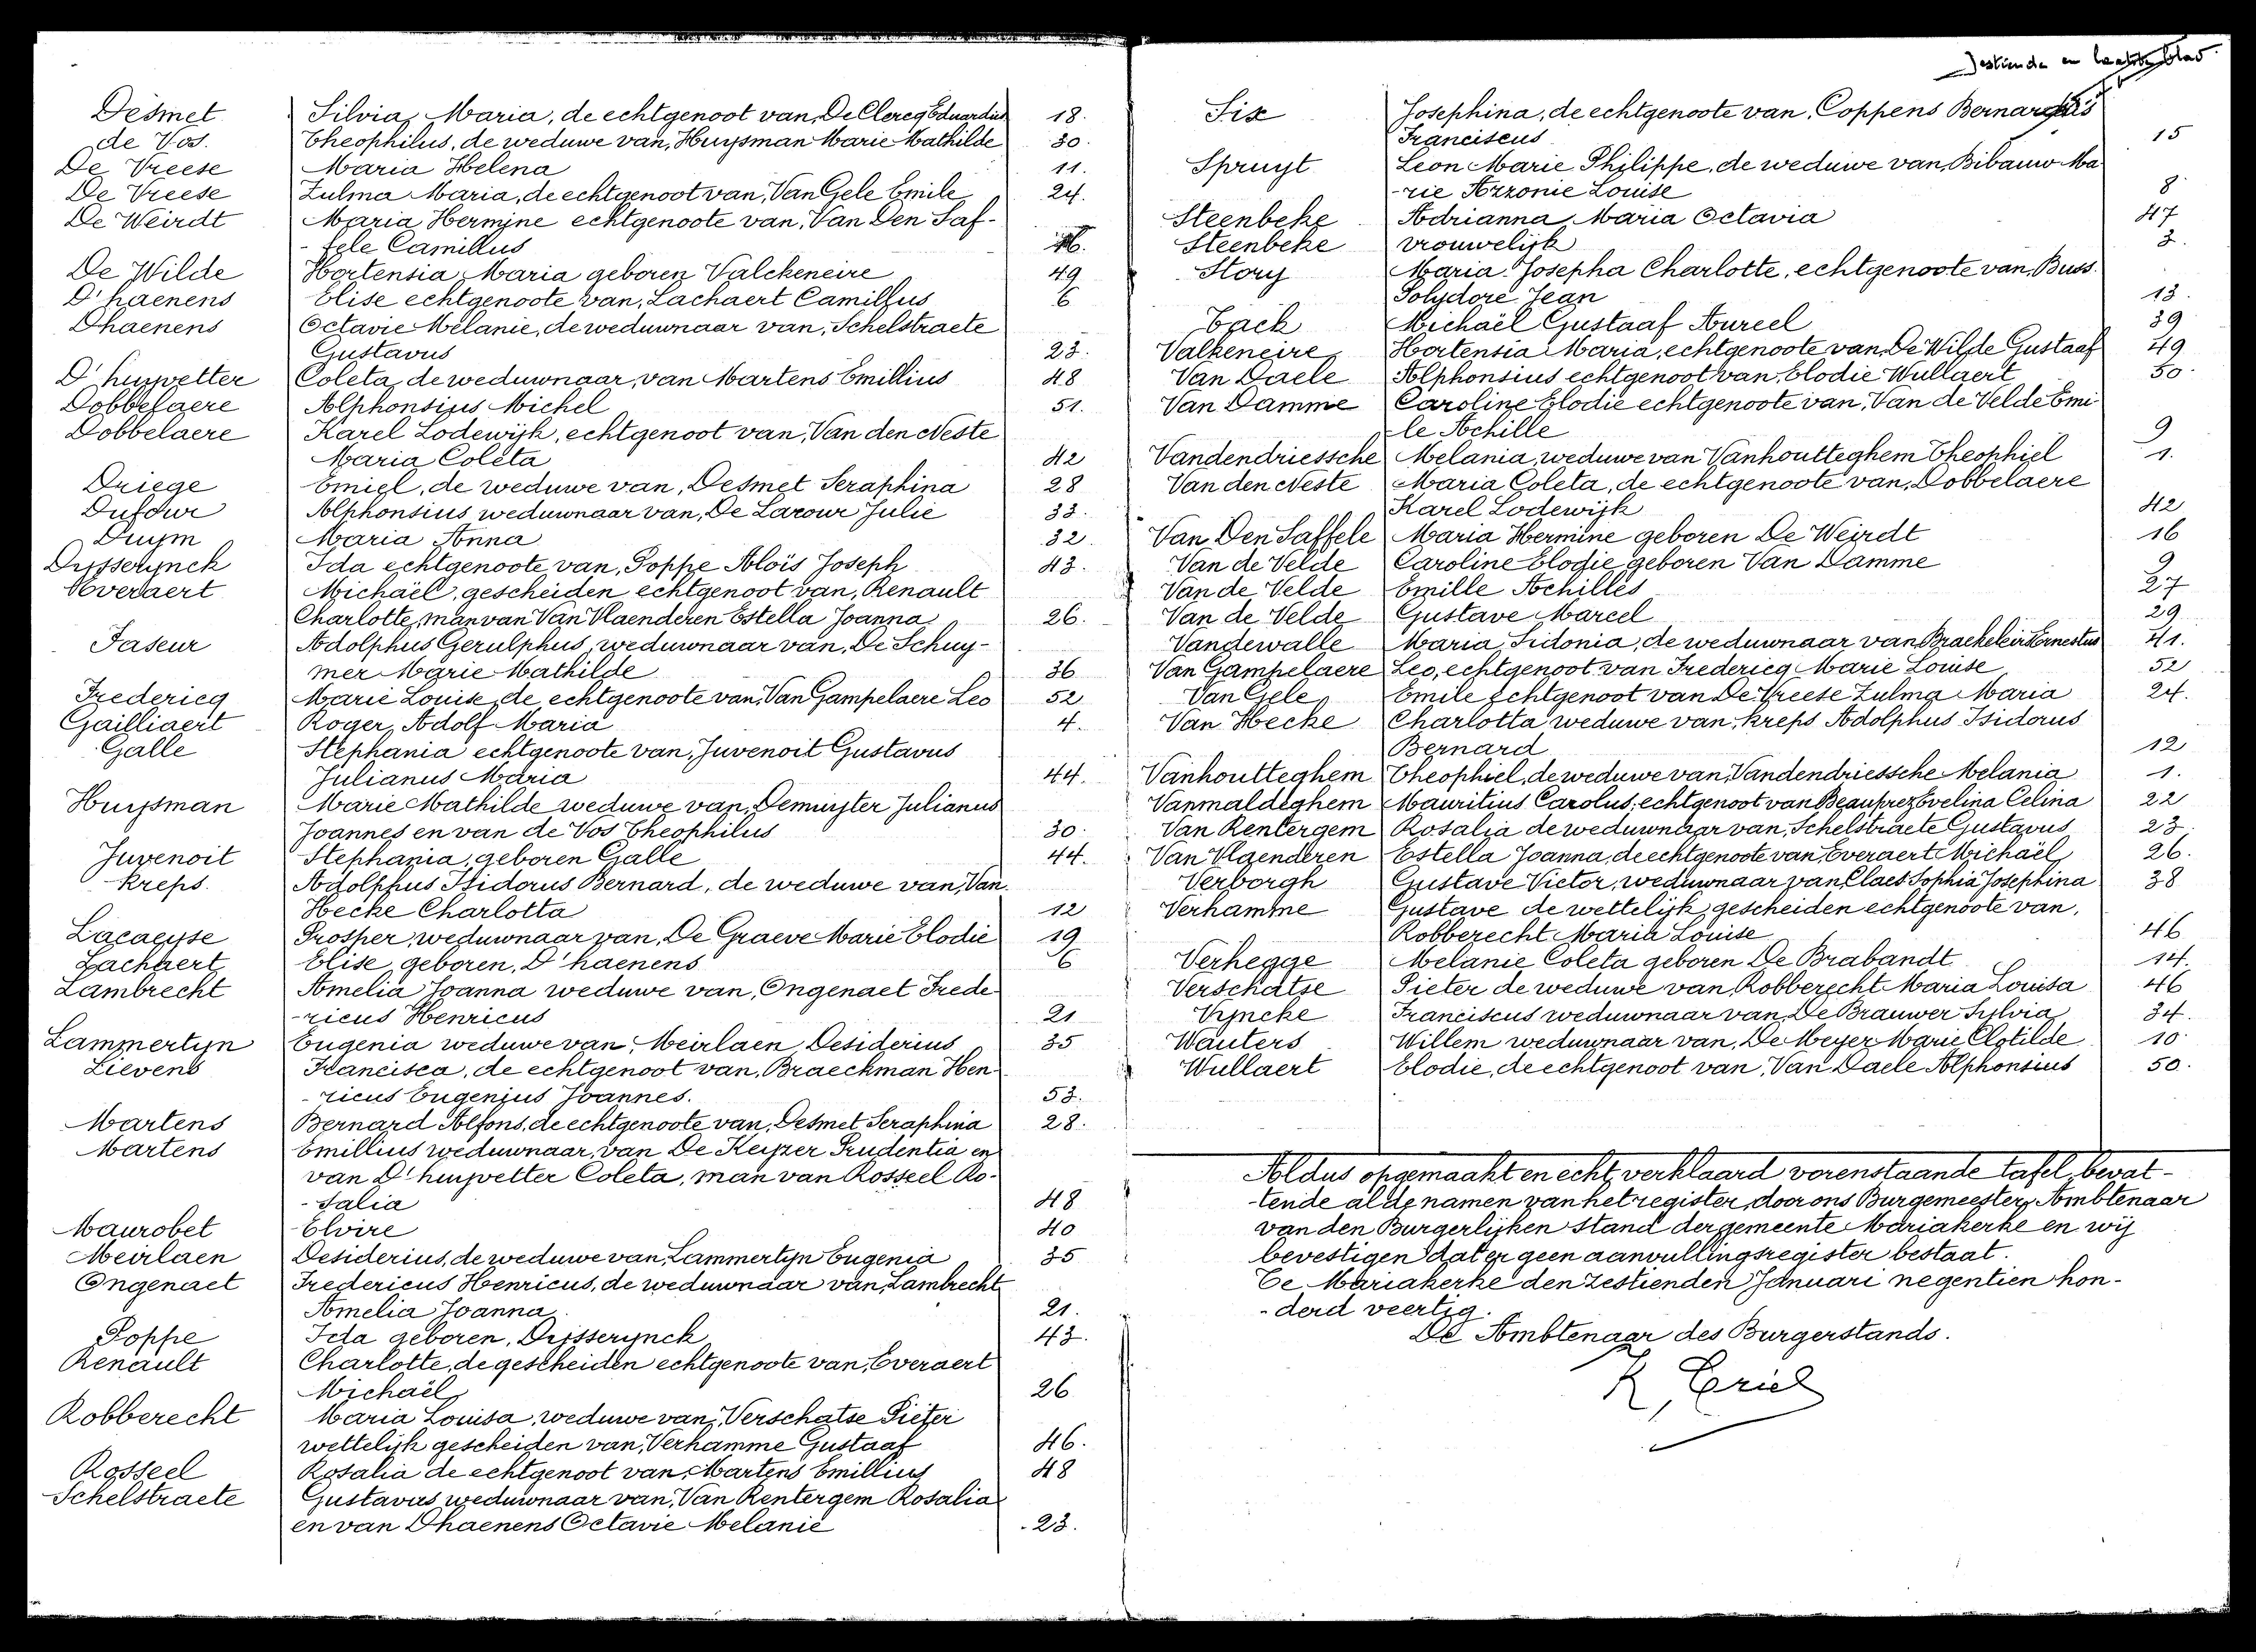 Zestiende en laatste blad.
Desmet Silvia, Maria, de echtgenoot van, De Clercq Eduardus 18.
de Vos. Theophilus, de weduwe van, Huysman Marie Mathilde 30.
De Vreese Maria Helena 11.
De Vreese Zulma Maria, de echtgenoot van, Van Gele Emile 24.
De Weirdt Maria Hermine echtgenoote van, Van Den Saf-
-fele Camillus
De Wilde Hortensia Maria geboren Valckeneire 49
D'haenens Elise echtgenoote van, Lachaert Camillus 6
Dhaenens Octavie Mélanie, de weduwnaar van, Schelstraete
Gustavus 23.
D'huyvetter Coleta, de weduwnaar, van Martens Emillius 48
Dobbelaere Alphonsius Michel 51.
Dobbelaere Karel Lodewijk, echtgenoot van, Van den Neste
Maria Coleta 42
Driege Emiel, de weduwe van, Desmet Seraphina 28
Dufour Alphonsius weduwnaar van, De Larour Julie 33.
Duym Maria Anna 32.
Dusserynck Ida echtgenoote van, Poppe Aloïs Joseph 43.
Everaert Michaël, gescheiden echtgenoot van, Renault
Charlotte, man van Van Vlaenderen Estella Joanna 26.
Faseur Adolphus Gerulphus, weduwnaar van, De Schuy-
mer Marie Mathilde 36
Fredericq Marie Louise, de echtgenoote van, Van Gampelaere Leo 52
Gailliaert Roger, Adolf Maria 4.
Galle Stephania echtgenoote van, Juvenoit Gustavus
Julianus Maria 44.
Huysman Marie Mathilde weduwe van, Demuyter Julianus
Joannes en van de Vos Theophilus 30.
Juvenoit Stephania, geboren Galle 44.
Kreps. Adolphus Isidorus Bernard, de weduwe van, Van
Hecke Charlotta 12
Lacaeyse Prosper, weduwnaar van, De Graeve Marie Elodie 19
Lachaert Elise, geboren, D'haenens 6
Lambrecht Amelia Joanna weduwe van, Ongenaet Frede
-ricus Henricus 21
Lammertyn Eugenia weduwe van, Meirlaen Desiderius 35
Lievens Francisca, de echtgenoot van, Braeckman Hen
-ricus Eugenius Joannes. 53.
Martens Bernard Alfons, de echtgenoote van, Desmet Seraphina 28.
Martens Emillius weduwnaar, van De Keyzer Prudentia en
van D'huyvetter Coleta, man van Rosseel Ro-
-salia 48
Maurobet Elvire 40
Meirlaen Desiderius, de weduwe van, Lammertyn Eugenia 35
Ongenaet Fredericus Henricus, de weduwnaar van, Lambrecht
Amelia Joanna 21.
Poppe Ida geboren, Dusserynck 43.
Renault Charlotte, de gescheiden echtgenoote van, Everaert
Michaël 26
Robberecht Maria Louisa, weduwe van, Verschatse Pieter
wettelijk gescheiden van, Verhamme Gustaaf 46.
Rosseel Rosalia de echtgenoot van, Martens Emillius 48
Schelstraete Gustavus weduwnaar van, Van Rentergem Rosalia
en van Dhaenens Octavie Melanie 23.
Six Josephina, de echtgenoote van, Coppens Bernardus
Franciscus 15
Spruyt Leon Marie Philippe, de weduwe van, Bibauw Ma
-rie Azzonie Louise 8
Steenbeke Adrianna Maria Octavia 47
Steenbeke vrouwelijk 3.
Story Maria Josepha Charlotte, echtgenoote van, Buss.
Polydore Jean 13.
Tack Michaël Gustaaf Aureel 39
Valkeneire Hortensia Maria, echtgenoote van, De Wilde Gustaaf 49
Van Daele Alphonsius echtgenoot van, Elodie Wullaert 50.
Van Damme Caroline Elodie echtgenoote van, Van de Velde Emi
-le Achille 9
Vandendriessche Melania, weduwe van Vanhoutteghem Theophiel 1.
Van den Neste Maria Coleta, de echtgenoote van, Dobbelaere
Karel Lodewijk 42
Van Den Saffele Maria Hermine geboren De Weirdt 16
Van de Velde Caroline Elodie geboren Van Damme 9
Van de Velde Emille Achilles 27
Van de Velde Gustave Marcel 29
Vandewalle Maria Sidonia, de weduwnaar van Ernestus 41.
Van Gampelaere Leo, echtgenoot van Fredericq Marie Louise 52
Van Gele Emile echtgenoot van De Vreese Zulma Maria 24.
Van Hecke Charlotta weduwe van, Kreps Adolphus Isidorus
Bernard 12
Vanhoutteghem Theophiel, de weduwe van, Vandendriessche Melania 1.
Vanmaldeghem Mauritius Carolus, echtgenoot van Beauprez Evelina Celina 22
Van Rentergem Rosalia de weduwnaar van, Schelstraete Gustavus 23
Van Vlaenderen Estella Joanna, de echtgenoote van, Everaert Michaël 26.
Verborgh Gustave Victor, weduwnaar van, Claes Sophia Josephina 38
Verhamme Gustave de wettelijk gescheiden echtgenoote van,
Robberecht Maria Louise 46
Verhegge Melanie Coleta geboren De Brabandt 14.
Verschatse Pieter de weduwe van Robberecht Maria Louisa 46
Vyncke Franciscus weduwnaar van, De Brauwer Sylvia 34.
Wauters Willem weduwnaar van, De Meyer Marie Clotilde 10
Wullaert Elodie, de echtgenoot van, Van Daele Alphonsius 50.
Aldus opgemaakt en echt, verklaard vorenstaande tafel, bevat-
-tende al de namen van het register, door ons Burgemeester, Ambtenaar
van den Burgerlijken stand der gemeente Mariakerke en wij
bevestigen dat er geen aanvullingsregister bestaat.
Te Mariakerke den zestienden Januari negentien hon-
-derd veertig.
De Ambtenaar des Burgerstands.